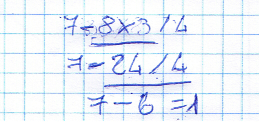 7-8×3/4
7-24/4
7-6=1